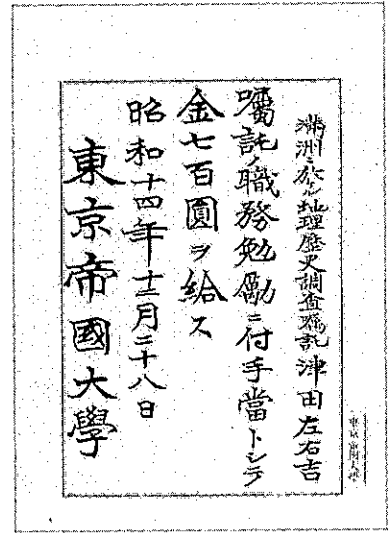 満洲ニ於ル地理歴史調査嘱託 津田左右吉
囑託ノ職務勉勵ニ付手當トシテ
金七百圓ヲ給ス
昭和十四年十二月二十八日
東京帝國大學
東京帝國大學